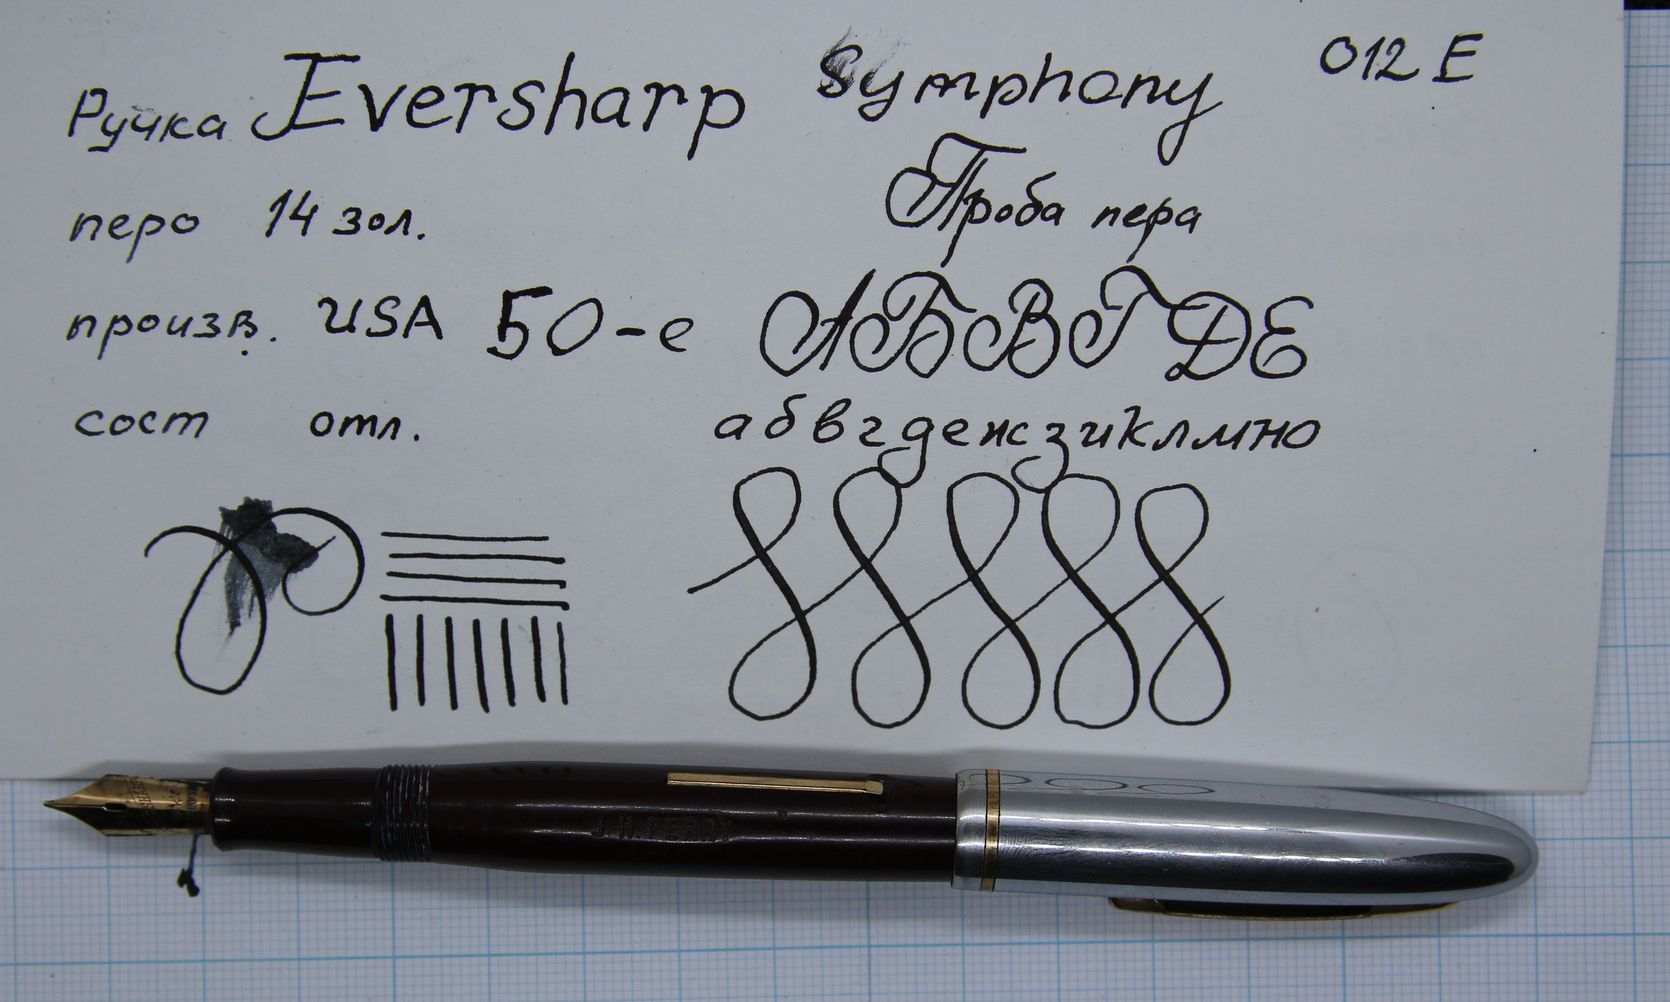 Ручка Eversharp Symphony 012 E
перо 14 зол.
Проба пера
произв. USA 50-е
АБВГДЕ
сост отл.
абвгдежзиклмно